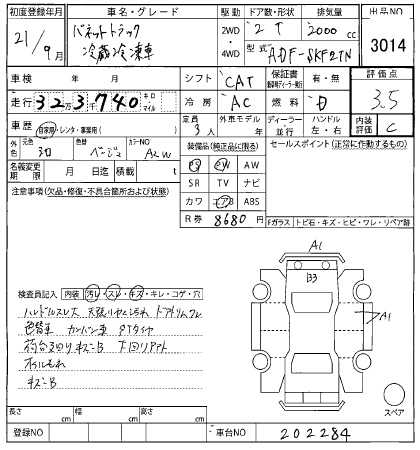 初度登録年月 車名・グレード 駆動 ドア数・形状 排気量 出品NO
21/9月 バネットトラック 冷蔵冷凍車 2WD・4WD 2T 2000cc 3014
型式 ADF-SKF2TN
車検 年 月 シフト CAT 保証書 有・無 評価点
走行 32万3千740 キロ・マイル 冷房 AC 燃料 D 3.5
車歴 自家用・レンタ・事業用( ) 定員 3人 外車モデル 年 ディーラー 並行 ハンドル 左・右 内装評価 C
外色 元色 シロ 色替 ベージュ カラーNO A2W 装備品(純正品に限る) セールスポイント(正常に作動するもの)
名義変更期限 月 日迄 積載 t PS PW AW
注意事項(欠品・修復・不具合箇所および状態) SR TV ナビ
カワ エアB ABS
R券 8680円 Fガラス トビ石・キズ・ヒビ・ワレ・リペア跡
A1
B3
A1
検査員記入 内装 汚レ・スレ・キズ・キレ・コゲ・穴
ハンドルスレ大 天張リヤヒンよごれ ドアトリムワレ
色替車 カンバン車
荷台3切りキズ・B 下回リサプト
オイルもれ
キズ・B
スペア
長さ cm 幅 cm 高さ cm
登録NO 車台NO 202284